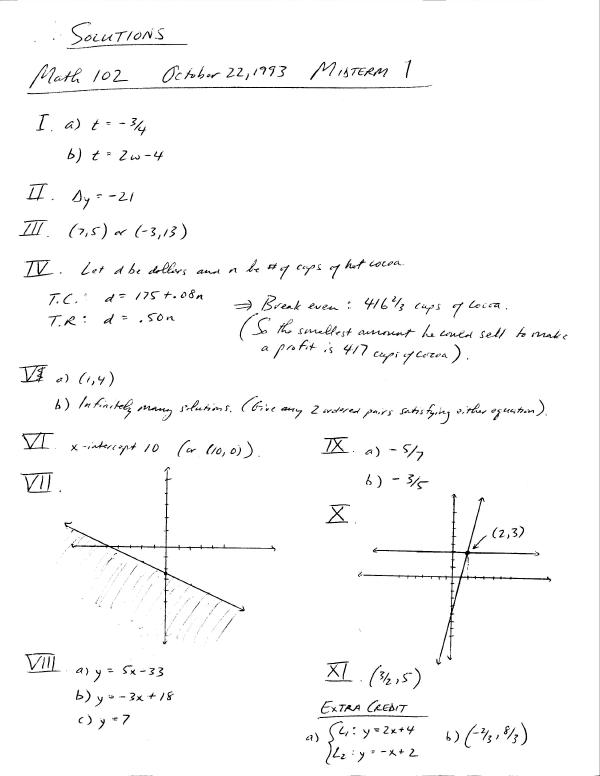 SOLUTIONS
Math 102 October 22, 1993 MIDTERM 1
I. a) t = -3/4
b) t = 2w-4
II. Δy = -21
III. (7,5) or (-3,13)
IV. Let d be dollars and n be # of cups of hot cocoa.
T.C.: d = 175 + .08n
T.R: d = .50n
⇒ Break even: 416 2/3 cups of cocoa.
(So the smallest amount he could sell to make
a profit is 417 cups of cocoa).
V a) (1,4)
b) Infinitely many solutions. (Give any 2 ordered pairs satisfying either equation).
VI. x-intercept 10 (or (10,0)).
VII.
VIII. a) y = 5x-33
b) y = -3x+18
c) y = 7
IX. a) -5/7
b) -3/5
X.
(2,3)
XI. (3/2, 5)
EXTRA CREDIT
a) { L1: y = 2x+4
L2: y = -x+2
b) (-2/3, 8/3)